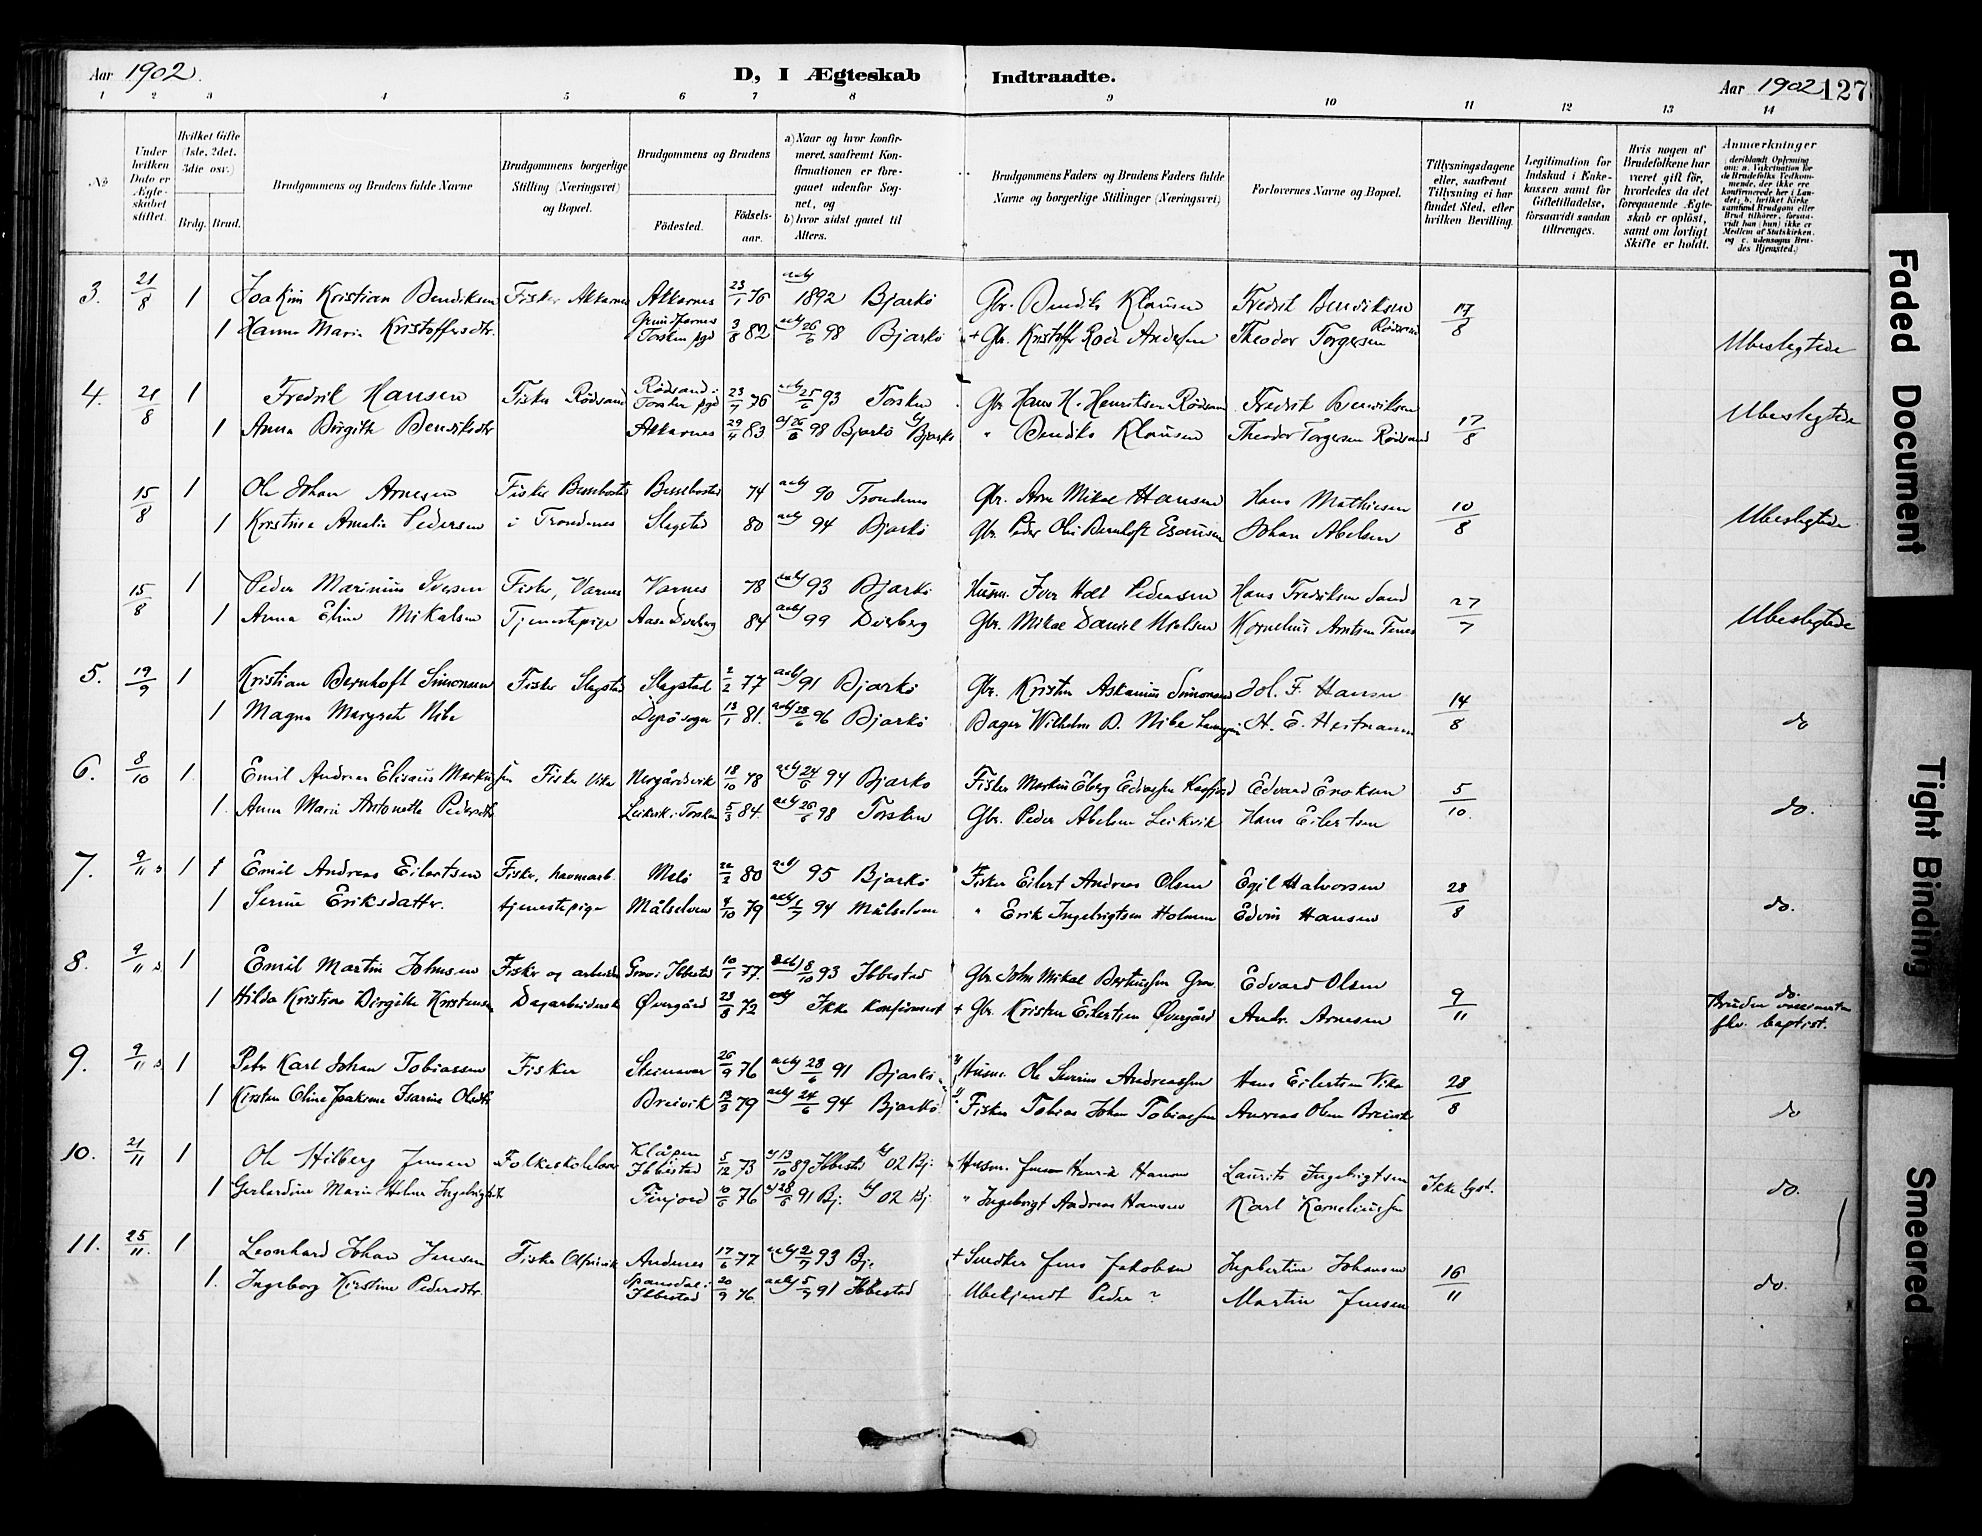 Aar 1902.
D, I Ægteskab Indtraadte.
Aar 1902 127
1 2 3 4 5 6 7 8 9 10 11 12 13 14
No
Under hvilken Dato er Ægteskabet stiftet.
Hvilket Gifte (1ste, 2det, 3die osv.)
Brdg. Brud.
Brudgommens og Brudens fulde Navne
Brudgommens borgerlige Stilling (Næringsvei) og Bopæl.
Brudgommens og Brudens
Födested. Födsels-aar.
a) Naar og hvor konfirmeret, saafremt Konfirmationen er foregaaet udenför Sognet, og
b) hvor sidst gaaet til Alters.
Brudgommens Faders og Brudens Faders fulde Navne og borgerlige Stillinger (Næringsvei)
Forlovernes Navne og Bopæl.
Tillysningsdagene eller, saafremt Tillysning ei har fundet Sted, efter hvilken Bevilling.
Legitimation for Indskud i Enkekassen samt for Giftetilladelse, forsaavidt saadan tiltrænges.
Hvis nogen af Brudefolkene har været gift för, hvorledes da det foregaaende Ægteskab er oplöst, samt om lovligt Skifte er holdt.
Anmærkninger
(deriblandt Oplysning om: a. Vakcination for de Brudefolks Vedkommende, der ikke ere konfirmerede her i Landet; b. hvilket Kirkesamfund Brudgom eller Brud tilhörer, forsaavidt han (hun) ikke er Medlem af Statskirken, og c. udensogns Brudes Hjemsted.)
3. 21/8 1 Joakim Kristian Bendiksen Fisker Akkarnes Akkarnes 23/1 76 1892 Bjarkö Gbr. Bendiks Klausen Fredrik Bendiksen 17/8
1 Hanna Maria Kristoffersdtr. Torsken pgd 3/8 82 26/6 98 Bjarkö + Gbr. Kristoffer Andersen Theodor Torgersen Rödsand Ubeslegtede
4. 21/8 1 Fredrik Hansen Fisker Rödsand Rödsand i Torsken pgd 23/7 76 25/6 93 Torsken Gbr Hans H. Henriksen Rödsand Fredrik Bendiksen
1 Anna Birgitte Bendiksdtr Akkarnes 29/4 83 26/6 98 Bjarkö b) Bjarkö " Bendiks Klausen Theodor Torgersen Rödsand 17/8 Ubeslegtede
15/8 1 Ole Johan Arnesen Fisker Bessebostad Bessebostad 74 90 Trondenes Gbr. Arne Mikal Hansen Hans Mathisen 10/8
1 Kristina Amalia Pedersen i Trondenes Slagstad 80 94 Bjarkö Gbr. Peder Oli Bernhoft Esaiasen Johan Abelsen Ubeslegtede
15/8 1 Peder Marinius Iversen Fisker, Varnes Varnes 78 93 Bjarkö Husm. Iver Holt Pedersen Hans Fredriksen Sand 27/7
1 Anna Eline Mikalsen Tjenestepige Aase Dverberg 84 99 Dverberg Gbr. Mikal Daniel Nielsen Kornelius Arntsen Ubeslegtede
5. 19/9 1 Kristian Bernhoft Simonsen Fisker Slagstad Slagstad 2/2 77 91 Bjarkö Gbr. Kristen Askanius Simonsen Joh. F. Hansen 14/8
1 Magna Margrete Nibe Dyrö sogn 13/1 81. 28/6 96 Bjarkö Bager Wilhelm B. Nibe H. E. Heitmann do
6. 8/10 1. Emil Andreas Elisæus Markussen Fisker Vika Nergårdsvik 18/10 78 24/6 94 Bjarkö Fisker Markus Eberg Edvard Eroksen 5/10.
1. Anna Marie Antonette Pedersdtr Leikvik i Torsken 5/3 84. 26/6 98 Torsken Gbr. Peder Abelsen Leikvik Hans Eilertsen do.
7. 9/11 1 1 Emil Andreas Eilertsen Fisker, havnearb. Melö 22/2 80 95 Bjarkö Fisker Eilert Andreas Olsen Egil Halvorsen 28/8
1 Serine Eriksdatter. tjenestepige Målselven 4/10 79 1/7 94 Målselven " Erik Ingebrigtsen Holmen Edvin Hansen do.
8. 9/11 1 Emil Martin Johnsen Fisker og arbeider Grov i Ibbestad 10/1 77. 8/10 93 Ibbestad Gbr John Mikal Berteussen Grov. Edvard Olsen 9/11
1 Hilda Kristine Birgitte Kristensen Dagarbeiderske Øvergård 23/8 72 Ikke konfirmert + Gbr. Kristen Eilertsen Øvergård Andr. Arnesen do. Bruden flv. baptist.
9. 9/11 1 Peter Karl Johan Tobiassen Fisker Steinavær 26/9 76 28/6 91 Bjarkö Husm. Ole Severin Andreassen Hans Eilertsen Vika 28/8
1 Kirsten Oline Joakime Isarine Olsdtr Breivik 13/3 79 24/6 94 Bjarkö. Fisker Tobias Johan Tobiassen Andreas Olsen Breivik do
10. 21/11 1 Ole Hilberg Jensen Folkeskolelærer Klåpen Ibbestad 5/12 73 13/10 89 Ibbestad b) 02 Bj. Husm. Jens Henrik Hansen Laurits Ingebrigtsen Ikke lyst.
1 Gerhardine Marie Helene Ingebrigtsdtr Finfjord 10/6 76 28/6 91 Bj. b) 02 Bj. " Ingebrigt Andreas Hansen Karl Korneliussen do.
11. 25/11. 1 Leonhard Johan Jensen Fisker Andenes 17/6 77 2/7 93 Bj. + Jens Jakobsen Ingbertine Johansen 16/11
1. Ingeborg Kirstine Pedersdtr. Spansdal i Ibbestad 20/9 76. 5/7 91 Ibbestad Ubekjendt Peder ? Martin Jensen do.
Faded Document
Tight Binding
Smeared